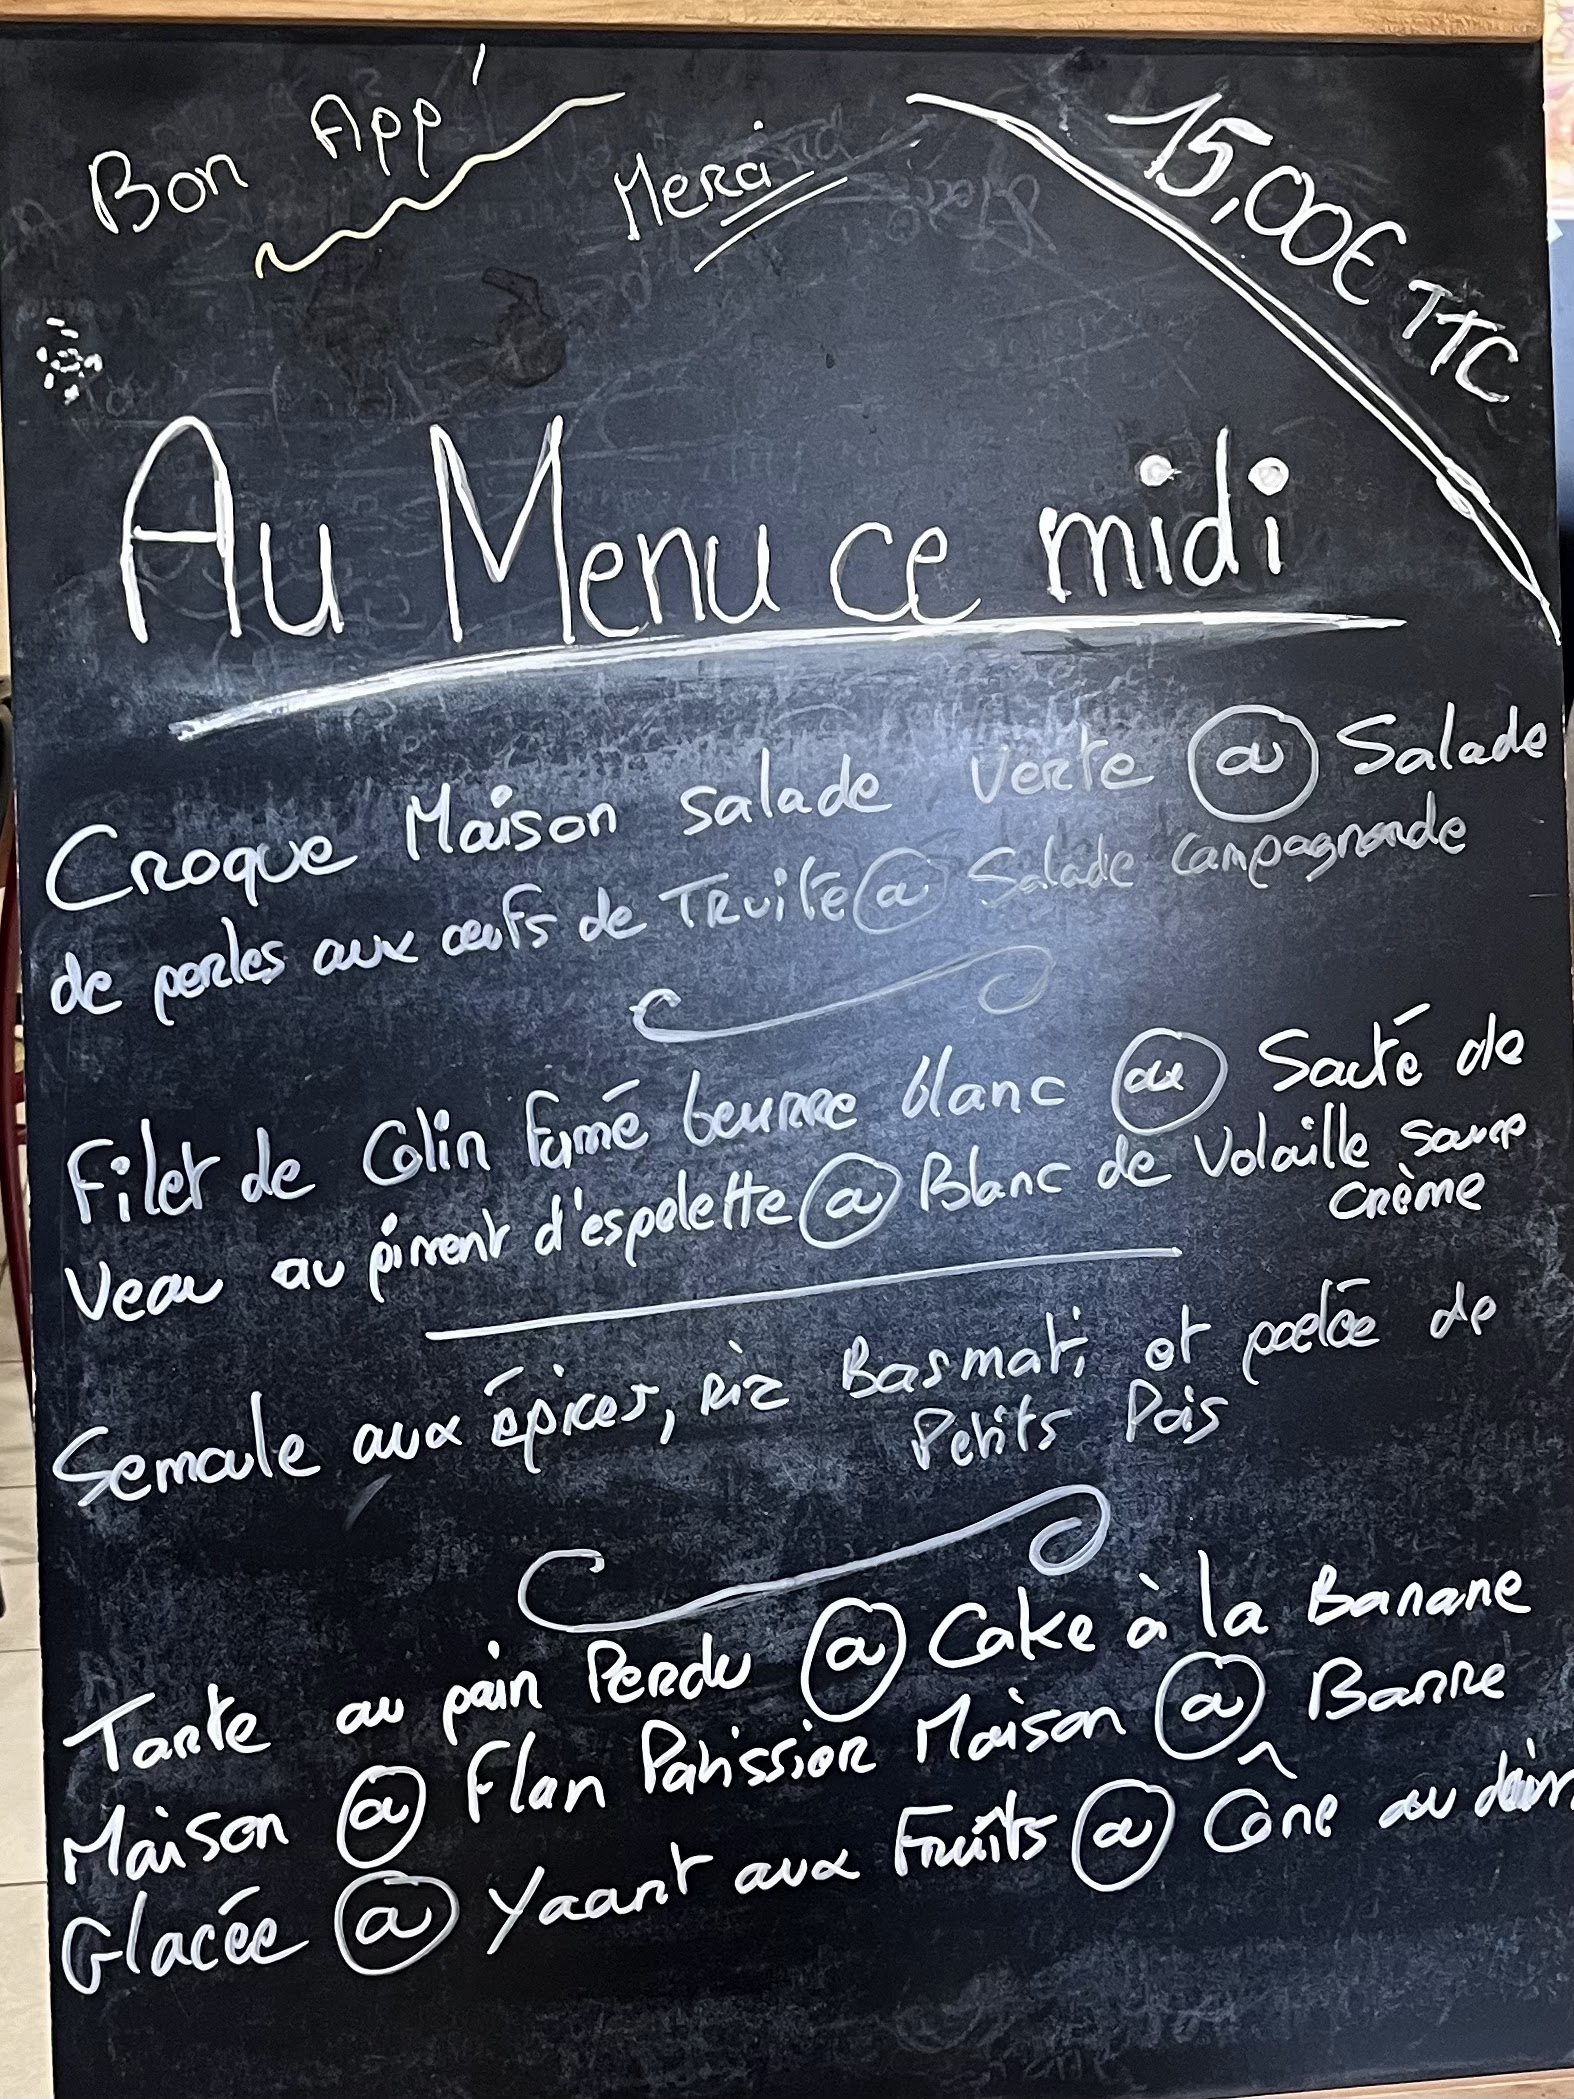 Bon App'
Merci
15,00€ TTC
Au Menu ce midi
Croque Maison salade verte ou Salade
de perles aux œufs de Truite ou Salade Campagnarde
Filet de Colin fumé beurre blanc ou Sauté de
Veau au piment d'espelette ou Blanc de Volaille sauce
Crème
Semoule aux épices, riz Basmati, et poelée de
Petits Pois
Tarte au pain Perdu ou Cake à la Banane
Maison ou Flan Patissier Maison ou Barre
Glacée ou Yaourt aux Fruîts ou Cône au